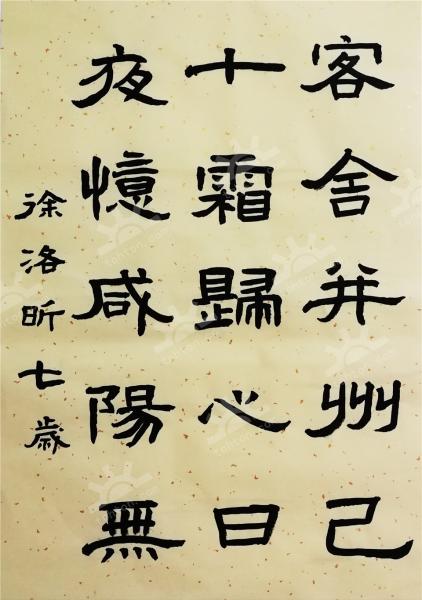 客舍并州己
十霜歸心日
夜憶咸陽無
徐洛昕七歲